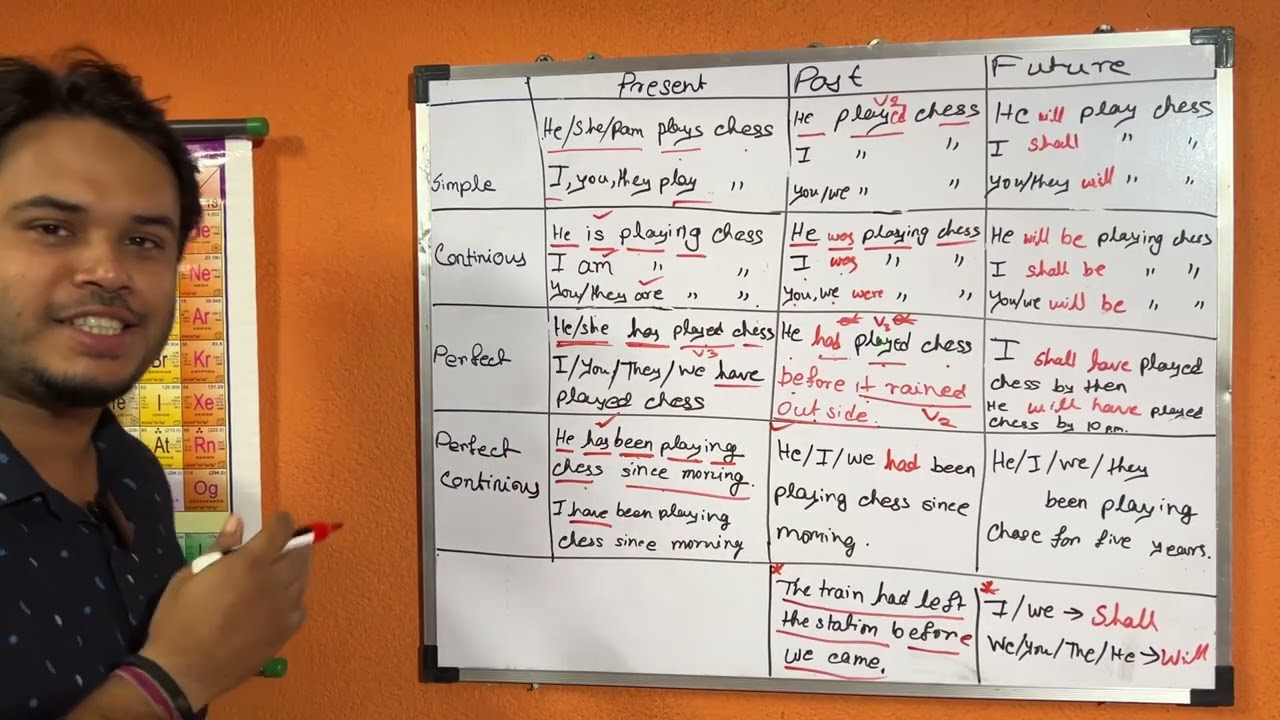 Present Past Future
Simple
He/She/Ram plays chess
I, you, they play "
V2
He played chess
I " "
You/we " "
He will play chess
I shall " "
You/they will " "
Continious
He is playing chess
I am " "
You/they are " "
He was playing chess
I was " "
You, we were " "
He will be playing chess
I shall be " "
You/we will be " "
Perfect
He/she has played chess
V3
I/You/They/We have
played chess
V3
He had played chess
before it rained
outside. V2
I shall have played
chess by then
He will have played
chess by 10 pm.
Perfect
Continious
He has been playing
chess since morning.
I have been playing
chess since morning
He/I/we had been
playing chess since
morning.
He/I/we/they
been playing
Chase for five years.
* The train had left
the station before
we came.
* I/we → Shall
We/You/The/He → Will
Ne
Ar
Kr
I Xe
At Rn
Og